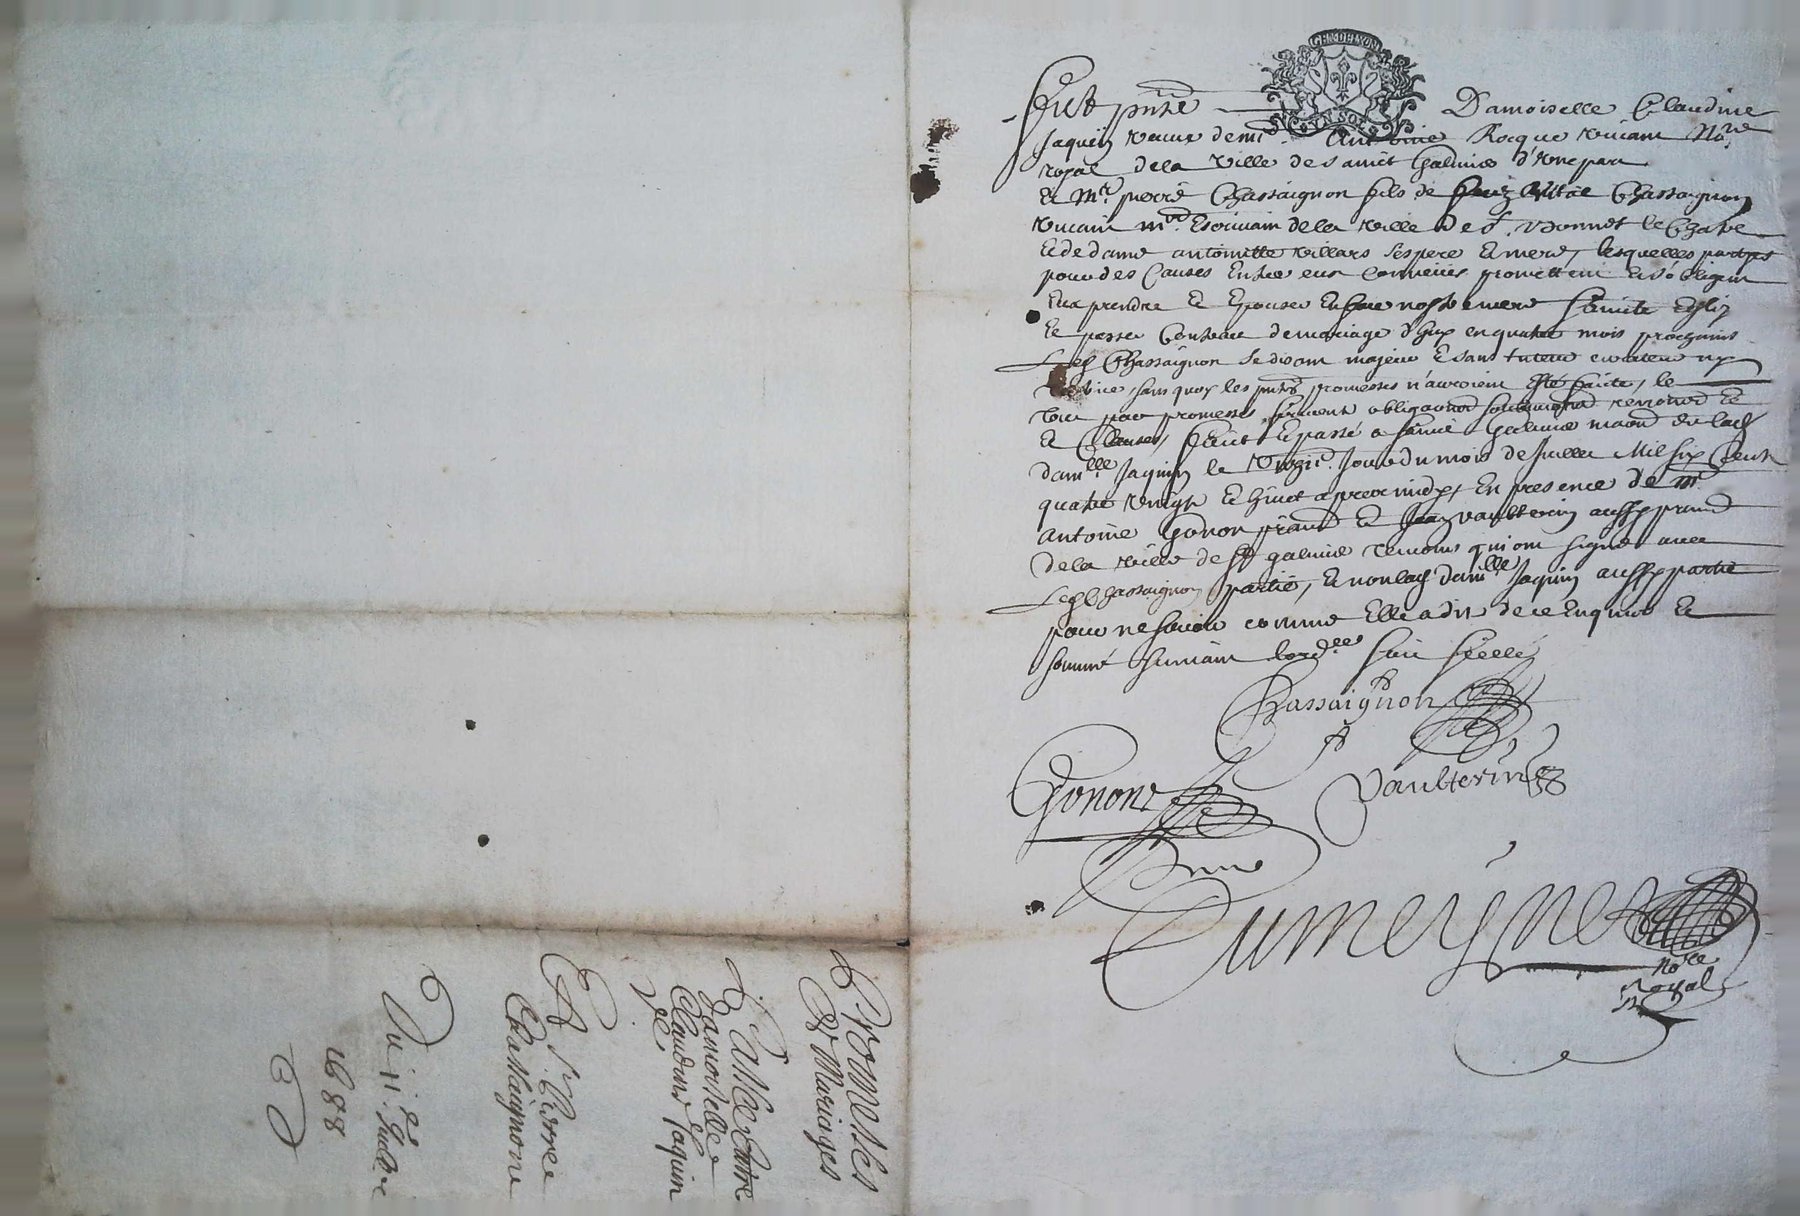 GEN DE LYON
VN SOL
Fust pnte Damoiselle Claudine
Jaquin veuve de mr Anthoine Rocque vivant Nore
royal de la Ville de sainct Galmier d'Une part
Et Mr pierre Chassaignon fils de Vital Chassaignon
vivant md Escrivain de la ville de St Bonnet le Chastel
Et de dame antoinette Villars ses pere et mere, lesquelles parties
pour des Causes Entre eux Connües promettent et s'obligent
se prendre et Epouser En nostre mere saincte Eglise
Et passer Contract de mariage d'huy en quatre mois prochains
Led Chassaignon se disant majeur et sans tuteur curateur ny
sans quoy les pntes promesses n'auroient esté faictes, le
tout par promesses serment obligaons renonce et
Et Clauses, faict et passé a sainct Galmier maison de lad
damlle Jaquin le unze Jour du mois de Juillet Mil six Cent
quatre vingt et huict apres midy, En presence de mr
Antoine Gonon et Jean Vaulterin aussy
de la ville de St galmier temoins qui ont signé avec
Led Chassaignon partie, et non lad damlle Jaquin aussy partie
pour ne scavoir comme Elle a dit de ce Enquise et
sommé suivant lordce soit scellé
Chassaignon
Gonon
Vaulterin
Dumeynes
Nore
Royal
Promesses
De Mariages
Passée Entre
Damoiselle
Claudine Jaquin
Et
Sr Pierre
Chassaignon
Du 11e Juillet
1688